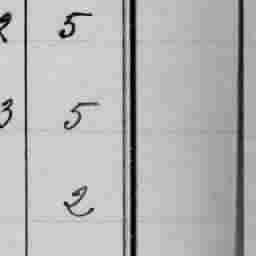 2 5
3 5
2